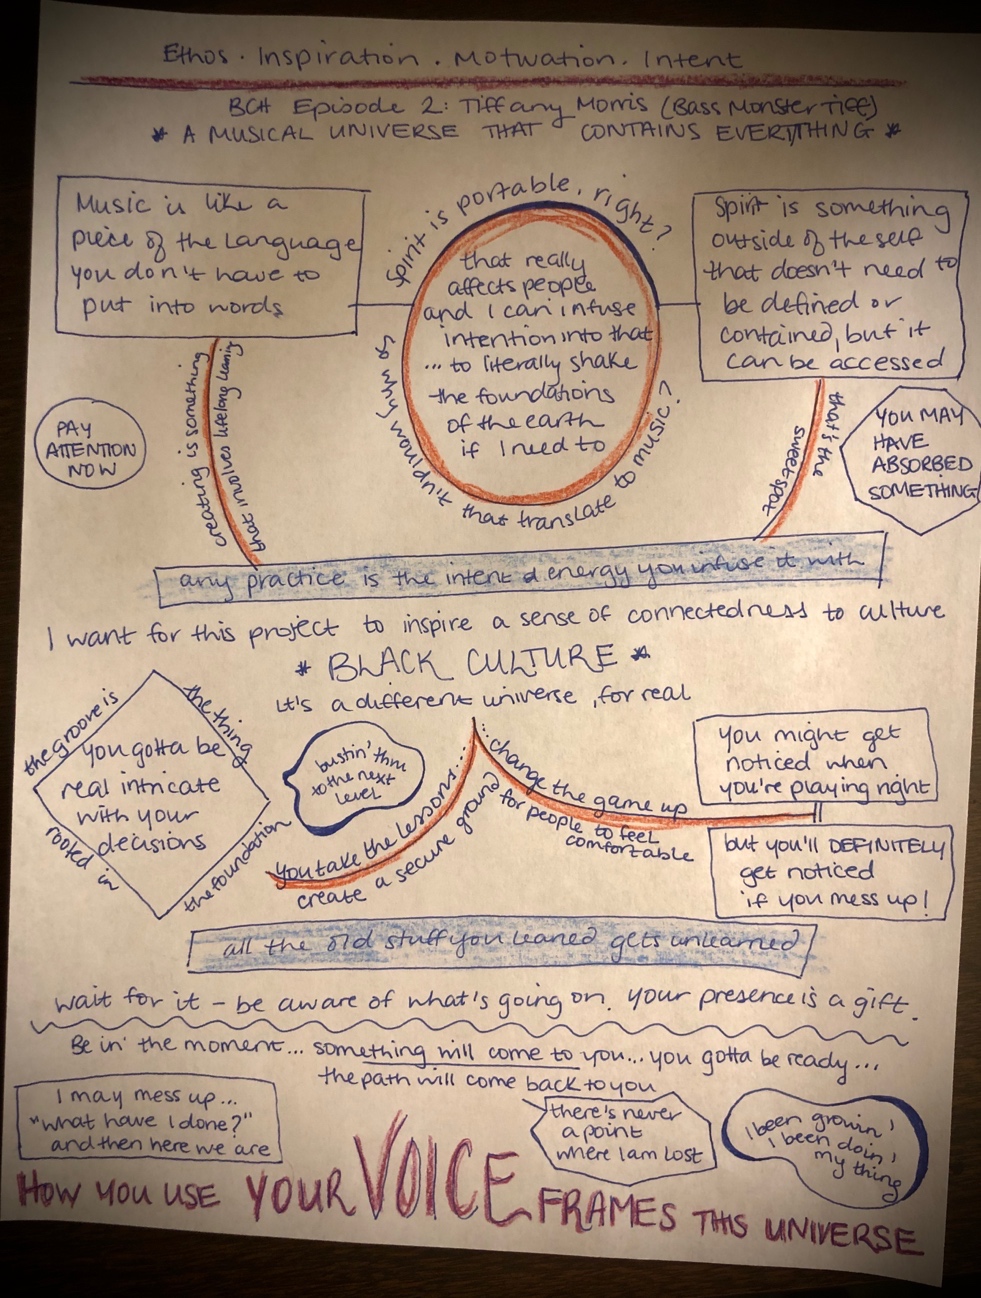 Ethos · Inspiration · Motivation · Intent
BCH Episode 2: Tiffany Morris (Bass Monster Tiff)
* A MUSICAL UNIVERSE THAT CONTAINS EVERYTHING *
Music is like a
piece of the language
you don't have to
put into words
Spirit is portable, right?
so why wouldn't that translate to music?
that really
affects people
and I can infuse
intention into that
... to literally shake
the foundations
of the earth
if I need to
Spirit is something
outside of the self
that doesn't need to
be defined or
contained, but it
can be accessed
PAY
ATTENTION
NOW
creating is something
that involves lifelong learning
that's the
sweet spot
YOU MAY
HAVE
ABSORBED
SOMETHING
any practice is the intent & energy you infuse it with
I want for this project to inspire a sense of connectedness to culture
* BLACK CULTURE *
it's a different universe, for real
the groove is
the thing
rooted in
the foundation
you gotta be
real intricate
with your
decisions
bustin' thru
to the next
level
you take the lessons...
create a secure ground
...change the game up
for people to feel
comfortable
you might get
noticed when
you're playing right
but you'll DEFINITELY
get noticed
if you mess up!
all the old stuff you leaned gets unlearned
wait for it - be aware of what's going on. your presence is a gift.
Be in the moment... something will come to you... you gotta be ready...
the path will come back to you
I may mess up...
"what have I done?"
and then here we are
there's never
a point
where I am lost
I been growin'
I been doin'
my thing
HOW YOU USE YOUR VOICE FRAMES THIS UNIVERSE